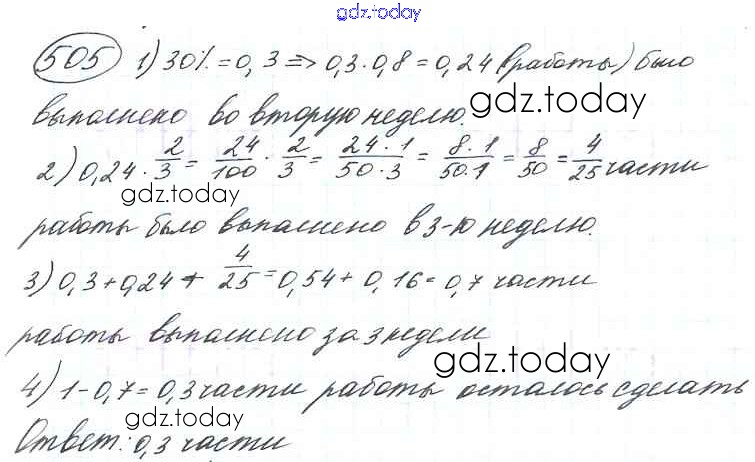 gdz.today
505 1) 30% = 0,3 => 0,3·0,8 = 0,24 (работы) было
выполнено во вторую неделю.
gdz.today
2) 0,24 · 2/3 = 24/100 · 2/3 = 24·1/50·3 = 8·1/50·1 = 8/50 = 4/25 части
gdz.today
работы было выполнено в 3-ю неделю.
3) 0,3+0,24 + 4/25 = 0,54 + 0,16 = 0,7 части
работы выполнено за 3 недели
gdz.today
4) 1-0,7 = 0,3 части работы осталось сделать
gdz.today
Ответ: 0,3 части